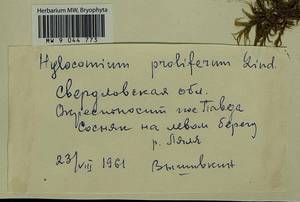 Herbarium MW, Bryophyta
MW 9 044 773
Hylocomium proliferum Lind.
Свердловская обл.
Окрестности пос. Павда
Сосняк на левом берегу
р. Ляля
23/VIII 1961 Вышивкин